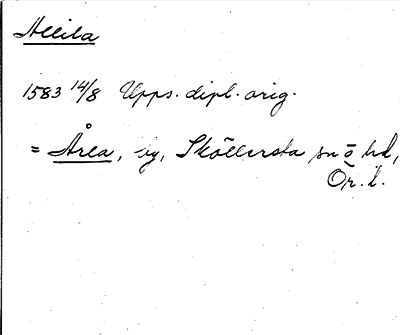 Allila
1583 14/8 Upps. dipl. orig.
= Årla, by, Sköllersta sn o hd,
Ör. l.